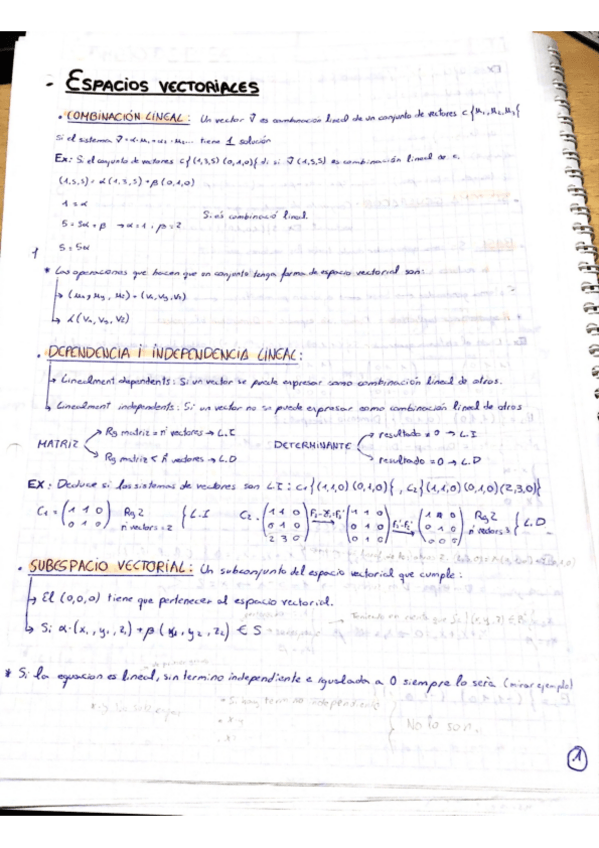 - ESPACIOS VECTORIALES
• COMBINACIÓN LINEAL: Un vector v⃗ es combinación lineal de un conjunto de vectores C{u₁, u₂, u₃}
Si el sistema v⃗ = α·u₁ + u₂ · u₂... tiene 1 solución
Ex: Si el conjunto de vectores C{(1,3,5) (0,1,0)} di si v⃗ (1,5,5) es combinación lineal de c.
(1,5,5) = α(1,3,5) + β(0,1,0)
1 = α
5 = 3α + β → α = 1, β = 2 Si es combinació lineal.
5 = 5α
1
* Las operaciones que hacen que un conjunto tenga forma de espacio vectorial son:
↳ α(
• DEPENDENCIA I INDEPENDENCIA LINEAL:
→ Linealment dependents: Si un vector se puede expresar como combinación lineal de otros.
↳ Linealment independents: Si un vector no se puede expresar como combinación lineal de otros
MATRIZ Rg matriz = nº vectores → L.I DETERMINANTE resultado ≠ 0 → L.I
Rg matriz < nº vectores → L.D resultado = 0 → L.D
EX: Deduce si los sistemas de vectores son L.I: C₁{(1,1,0) (0,1,0)}, C₂{(1,1,0) (0,1,0) (2,3,0)}
C₁ = (1 1 0) Rg 2 { L.I C₂ = (1 1 0) (1 1 0) (1 1 0) Rg 2 { L.D
(0 1 0) nº vectors = 2 (0 1 0) (0 1 0) (0 1 0) nº vectors 3
(2 3 0) (0 1 0) (0 0 0)
• SUBESPACIO VECTORIAL: Un subconjunto del espacio vectorial que cumple:
→ El (0,0,0) tiene que pertenecer al espacio vectorial.
↳ Si α·(x₁, y₁, z₁) + β(x₂, y₂, z₂) ∈ S
* Si la equacion es lineal, sin termino independiente e igualada a 0 siempre lo sera (mirar ejemplo)
• Si hay termino independiente
No lo son.
1